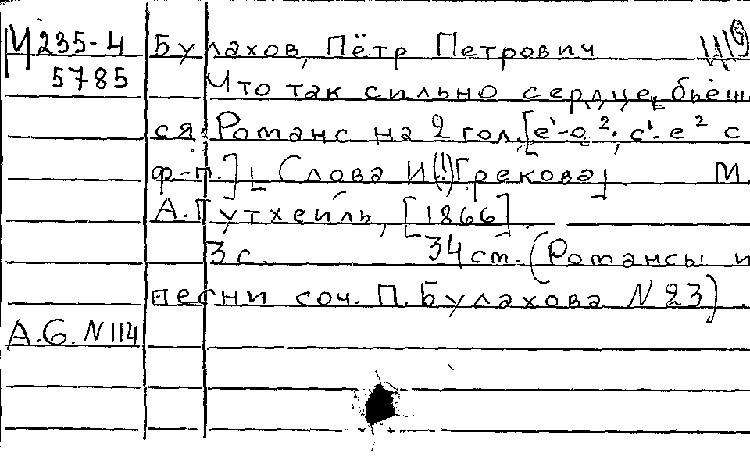 М 235-4
5785
Булахов, Пётр Петрович
Что так сильно сердце бьеш
ся. Романс на 2 гол. [e¹-a²; c¹-e² с
ф-п.] [Слова И(!) Грекова] М.
А. Гутхейль, [1866]
3 с. 34 ст. (Романсы и
песни соч. П. Булахова N 23)
А.Б. N 114